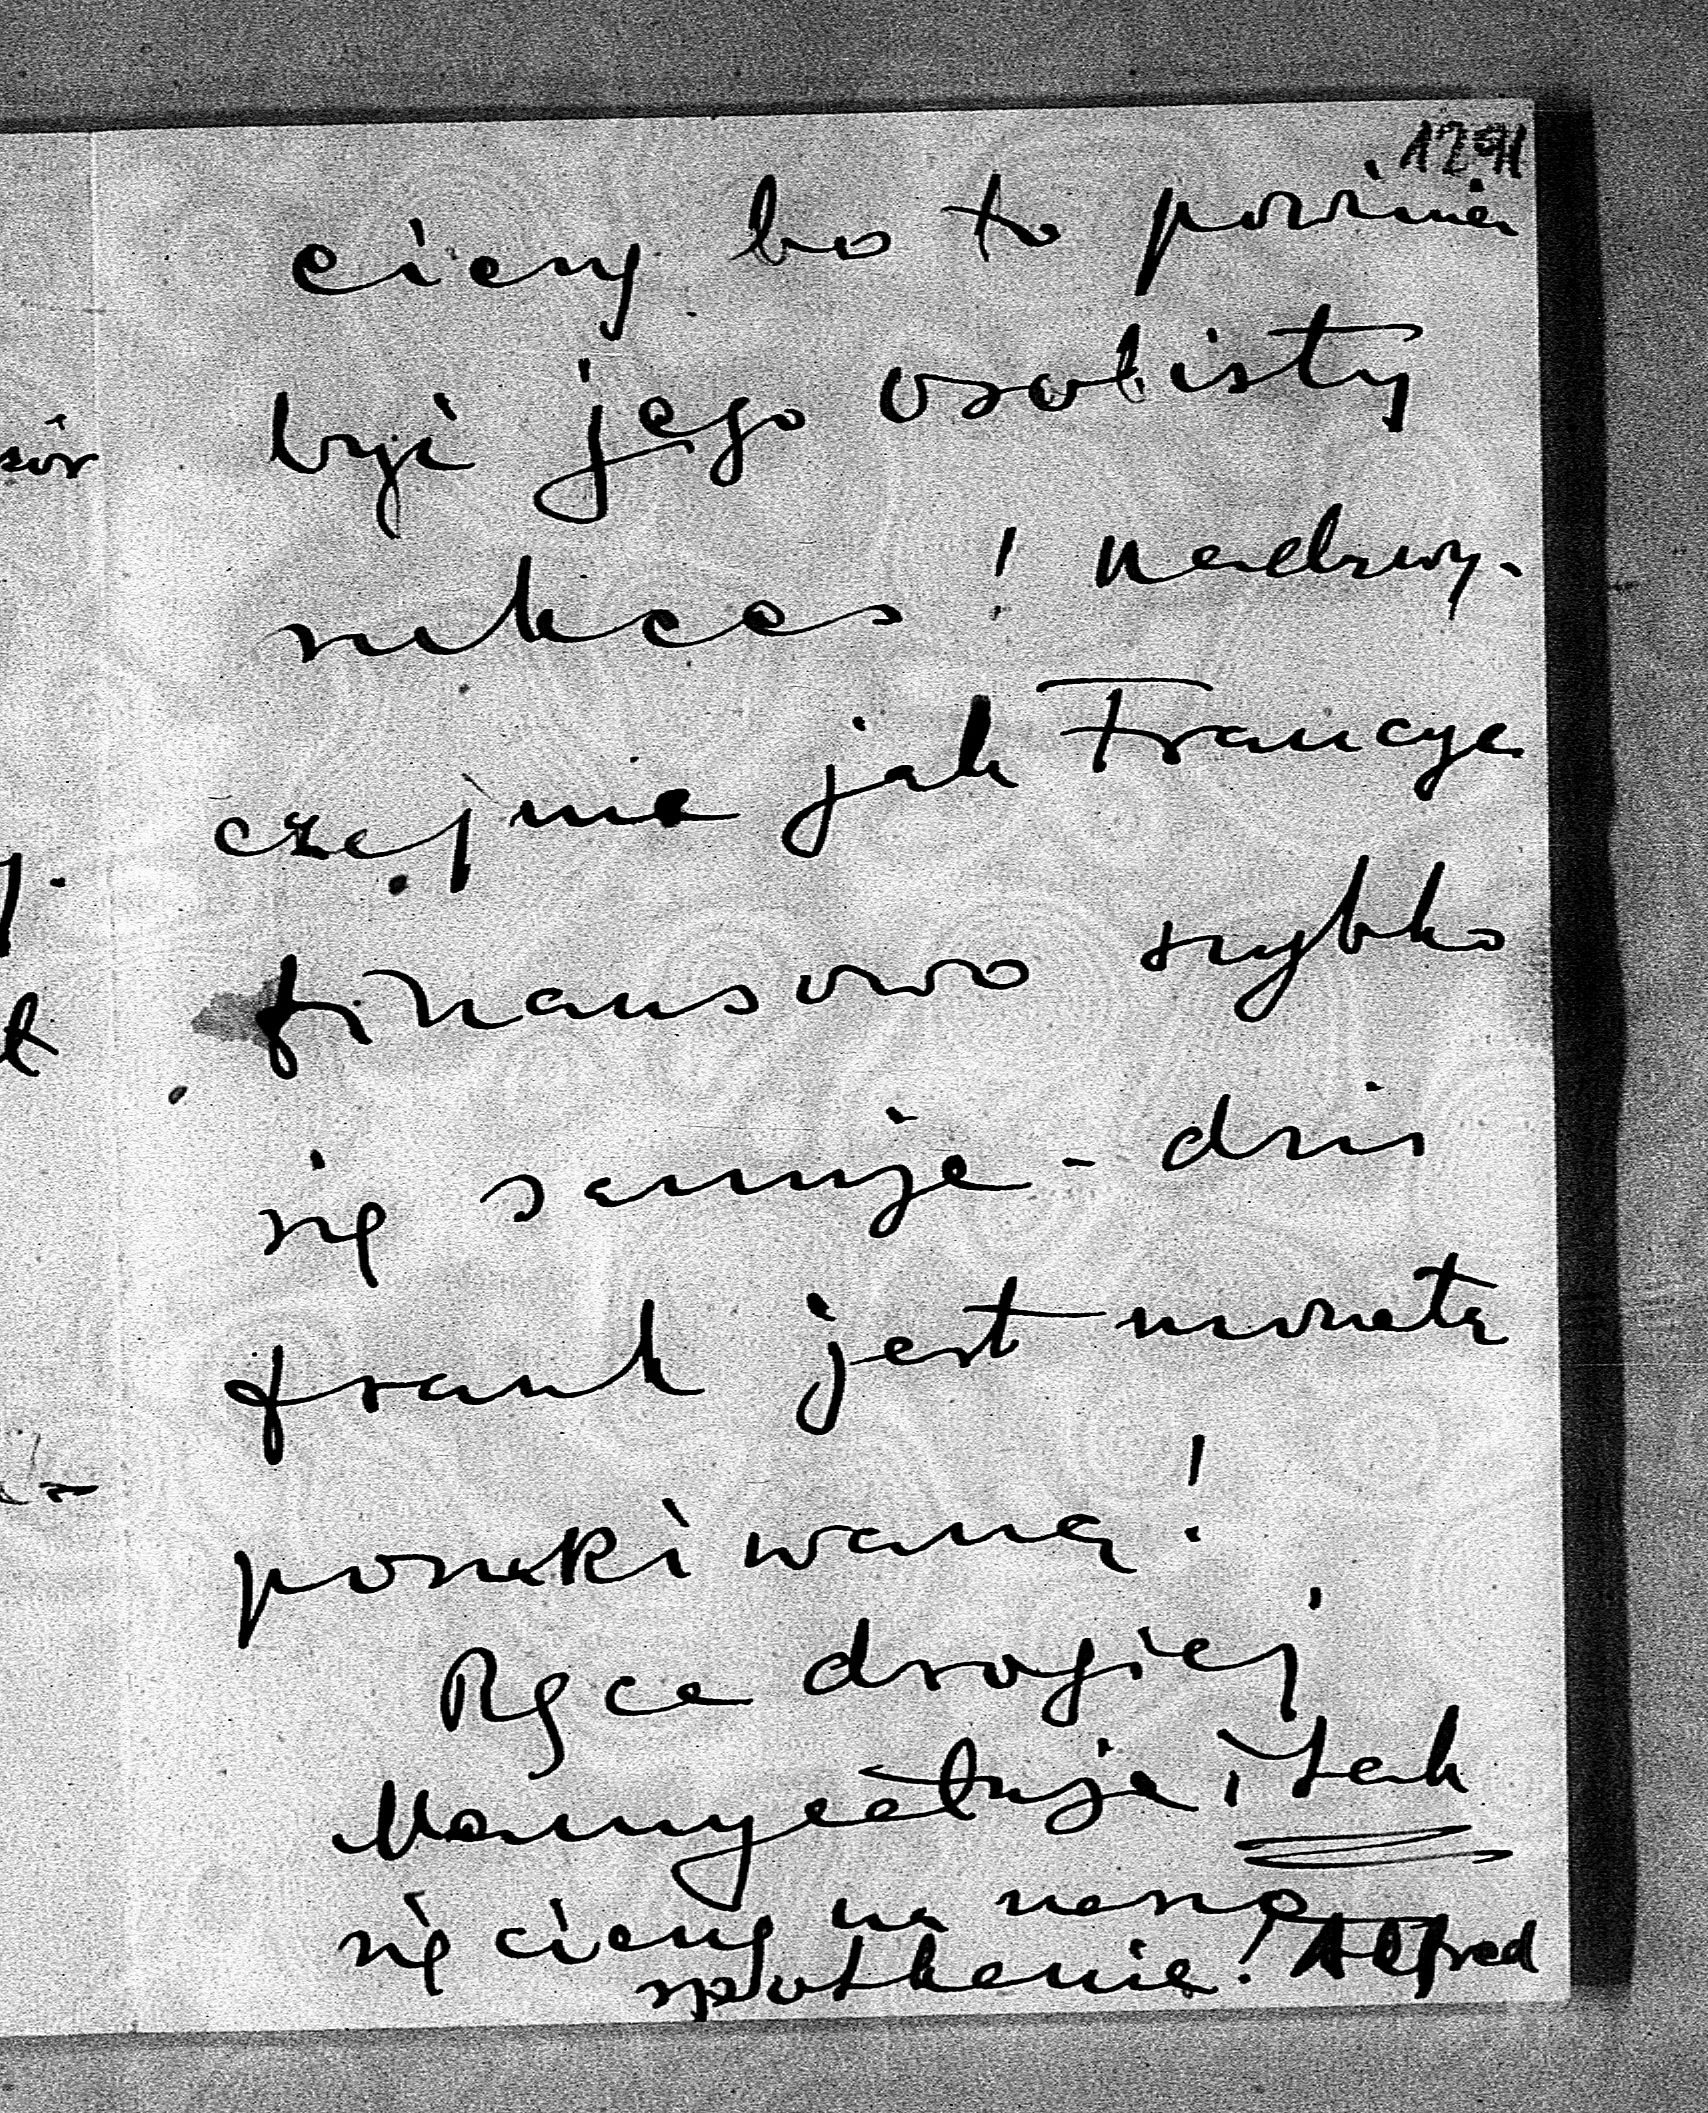 1291
cieszy bo to powinien
być jego osobisty
sukces! Nadzwy-
czajnie jak Francya
finansowo szybko
się sanuje - dziś
frank jest monetą
poszukiwaną!
Ręce drogiej
Mamy całuję i tak
się cieszę na nasze
spotkanie! Alfred